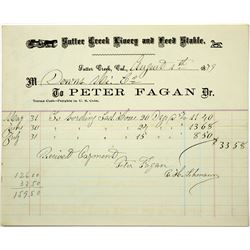 Sutter Creek Livery and Feed Stable.
Sutter Creek, Cal., August 5th 1879
M Downs Mi. Co
To PETER FAGAN Dr.
Terms Cash—Payable in U. S. Coin.
May 31 To bording Sad. Horse 20 Days 11.40
July 30 " " " 24 " 13.68
July 31 " " " 15 " 8.50
$33.58
Received Payment
Peter Fagan
126.00
33.50
159.50